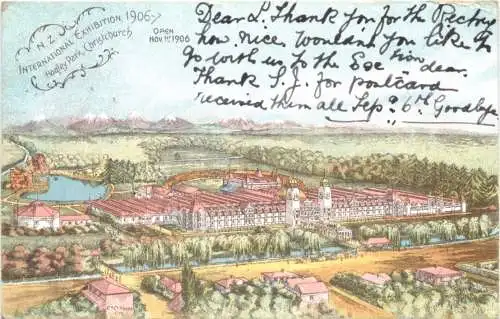 N.Z.
INTERNATIONAL EXHIBITION 1906-7
Hagley Park, Christchurch
OPEN
NOV 1st 1906
Dear L. Thank you for the Pretty
how nice Wouldnt you like to
Go with us to the Exe from dear.
Thank S. J. for postcard
received them all Sep. 6th Goodbye